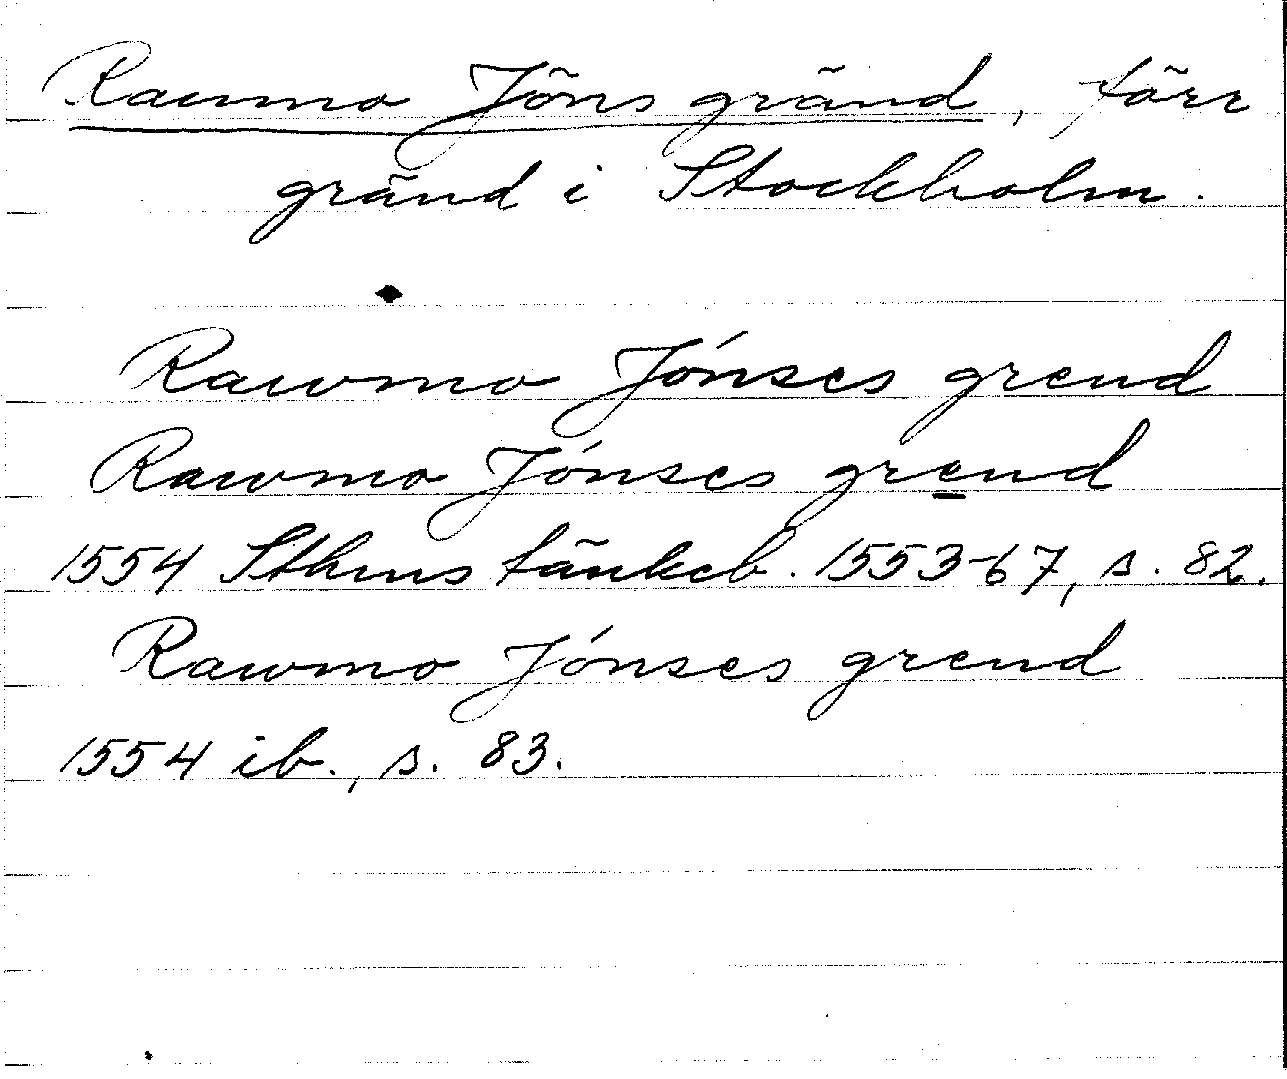 Raumo Jöns gränd, förr
gränd i Stockholm.
Rawmo Jónses grend
Rawmo Jónses grend
1554 Sthms tänkeb. 1553-67, s. 82.
Rawmo Jónses grend
1554 ib., s. 83.